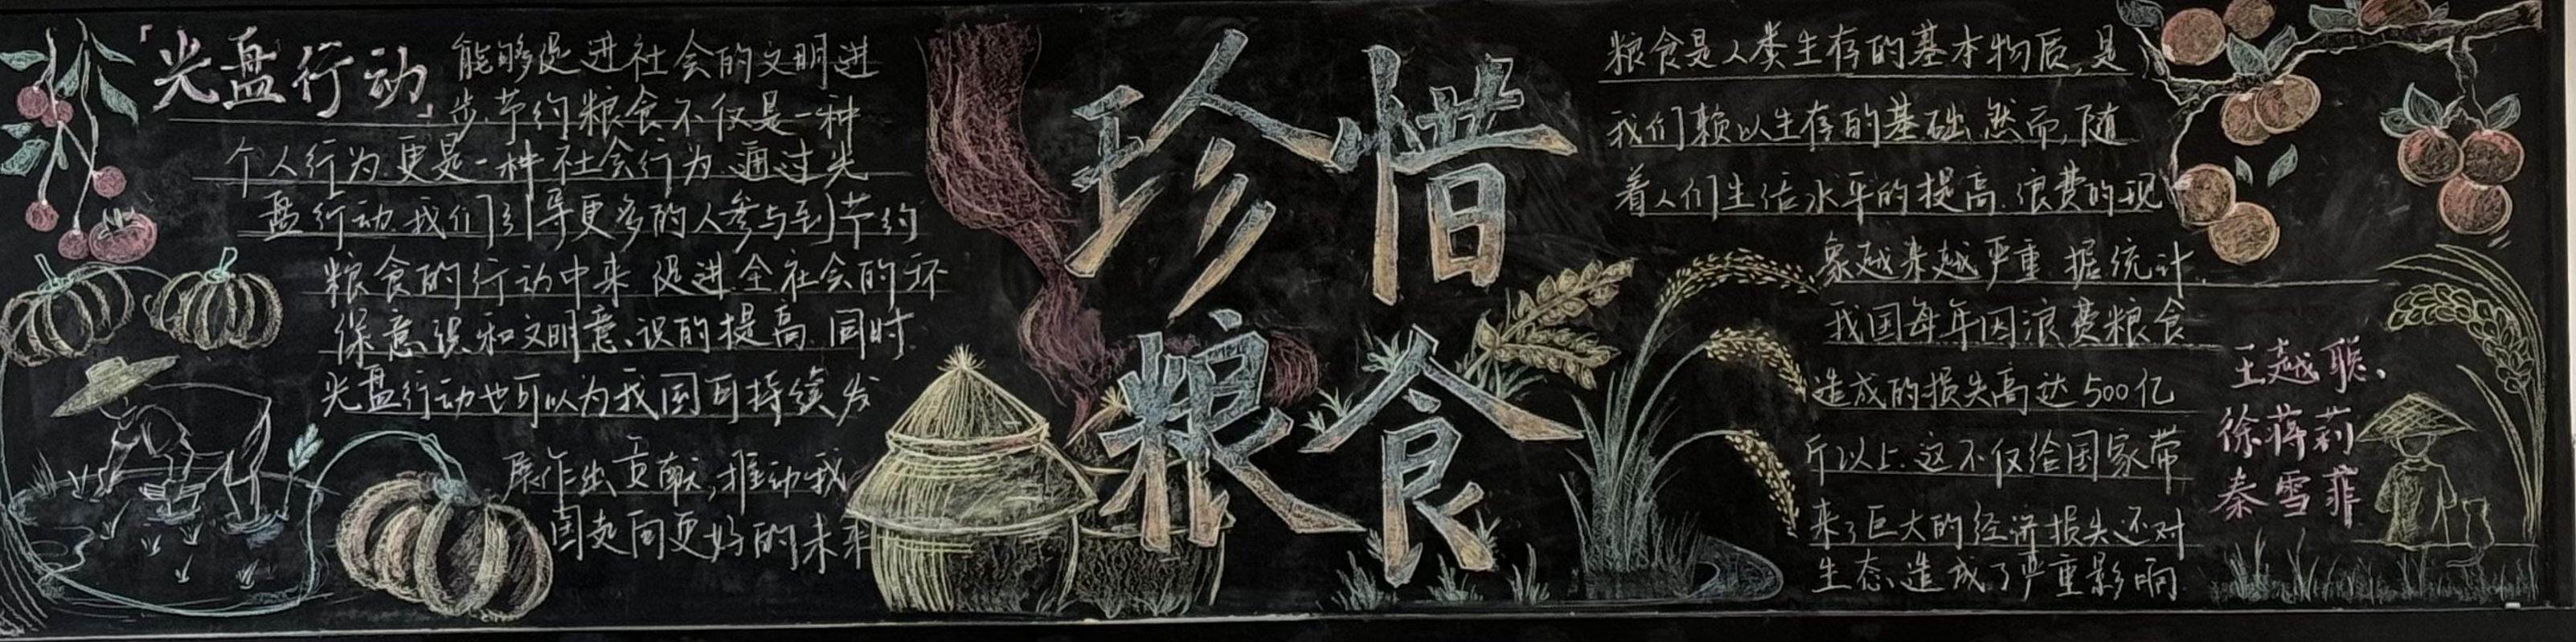 「光盘行动」
能够促进社会的文明进
步.节约粮食不仅是一种
个人行为.更是一种社会行为.通过光
盘行动.我们引导更多的人参与到节约
粮食的行动中来.促进全社会的环
保意识和文明意识的提高.同时.
光盘行动也可以为我国可持续发
展作出贡献,推动我
国走向更好的未来
珍惜
粮食
粮食是人类生存的基本物质,是
我们赖以生存的基础.然而,随
着人们生活水平的提高.浪费的现
象越来越严重.据统计.
我国每年因浪费粮食
造成的损失高达500亿
斤以上.这不仅给国家带
来了巨大的经济损失还对
生态造成了严重影响
王越聪、
徐蒋莉
秦雪菲